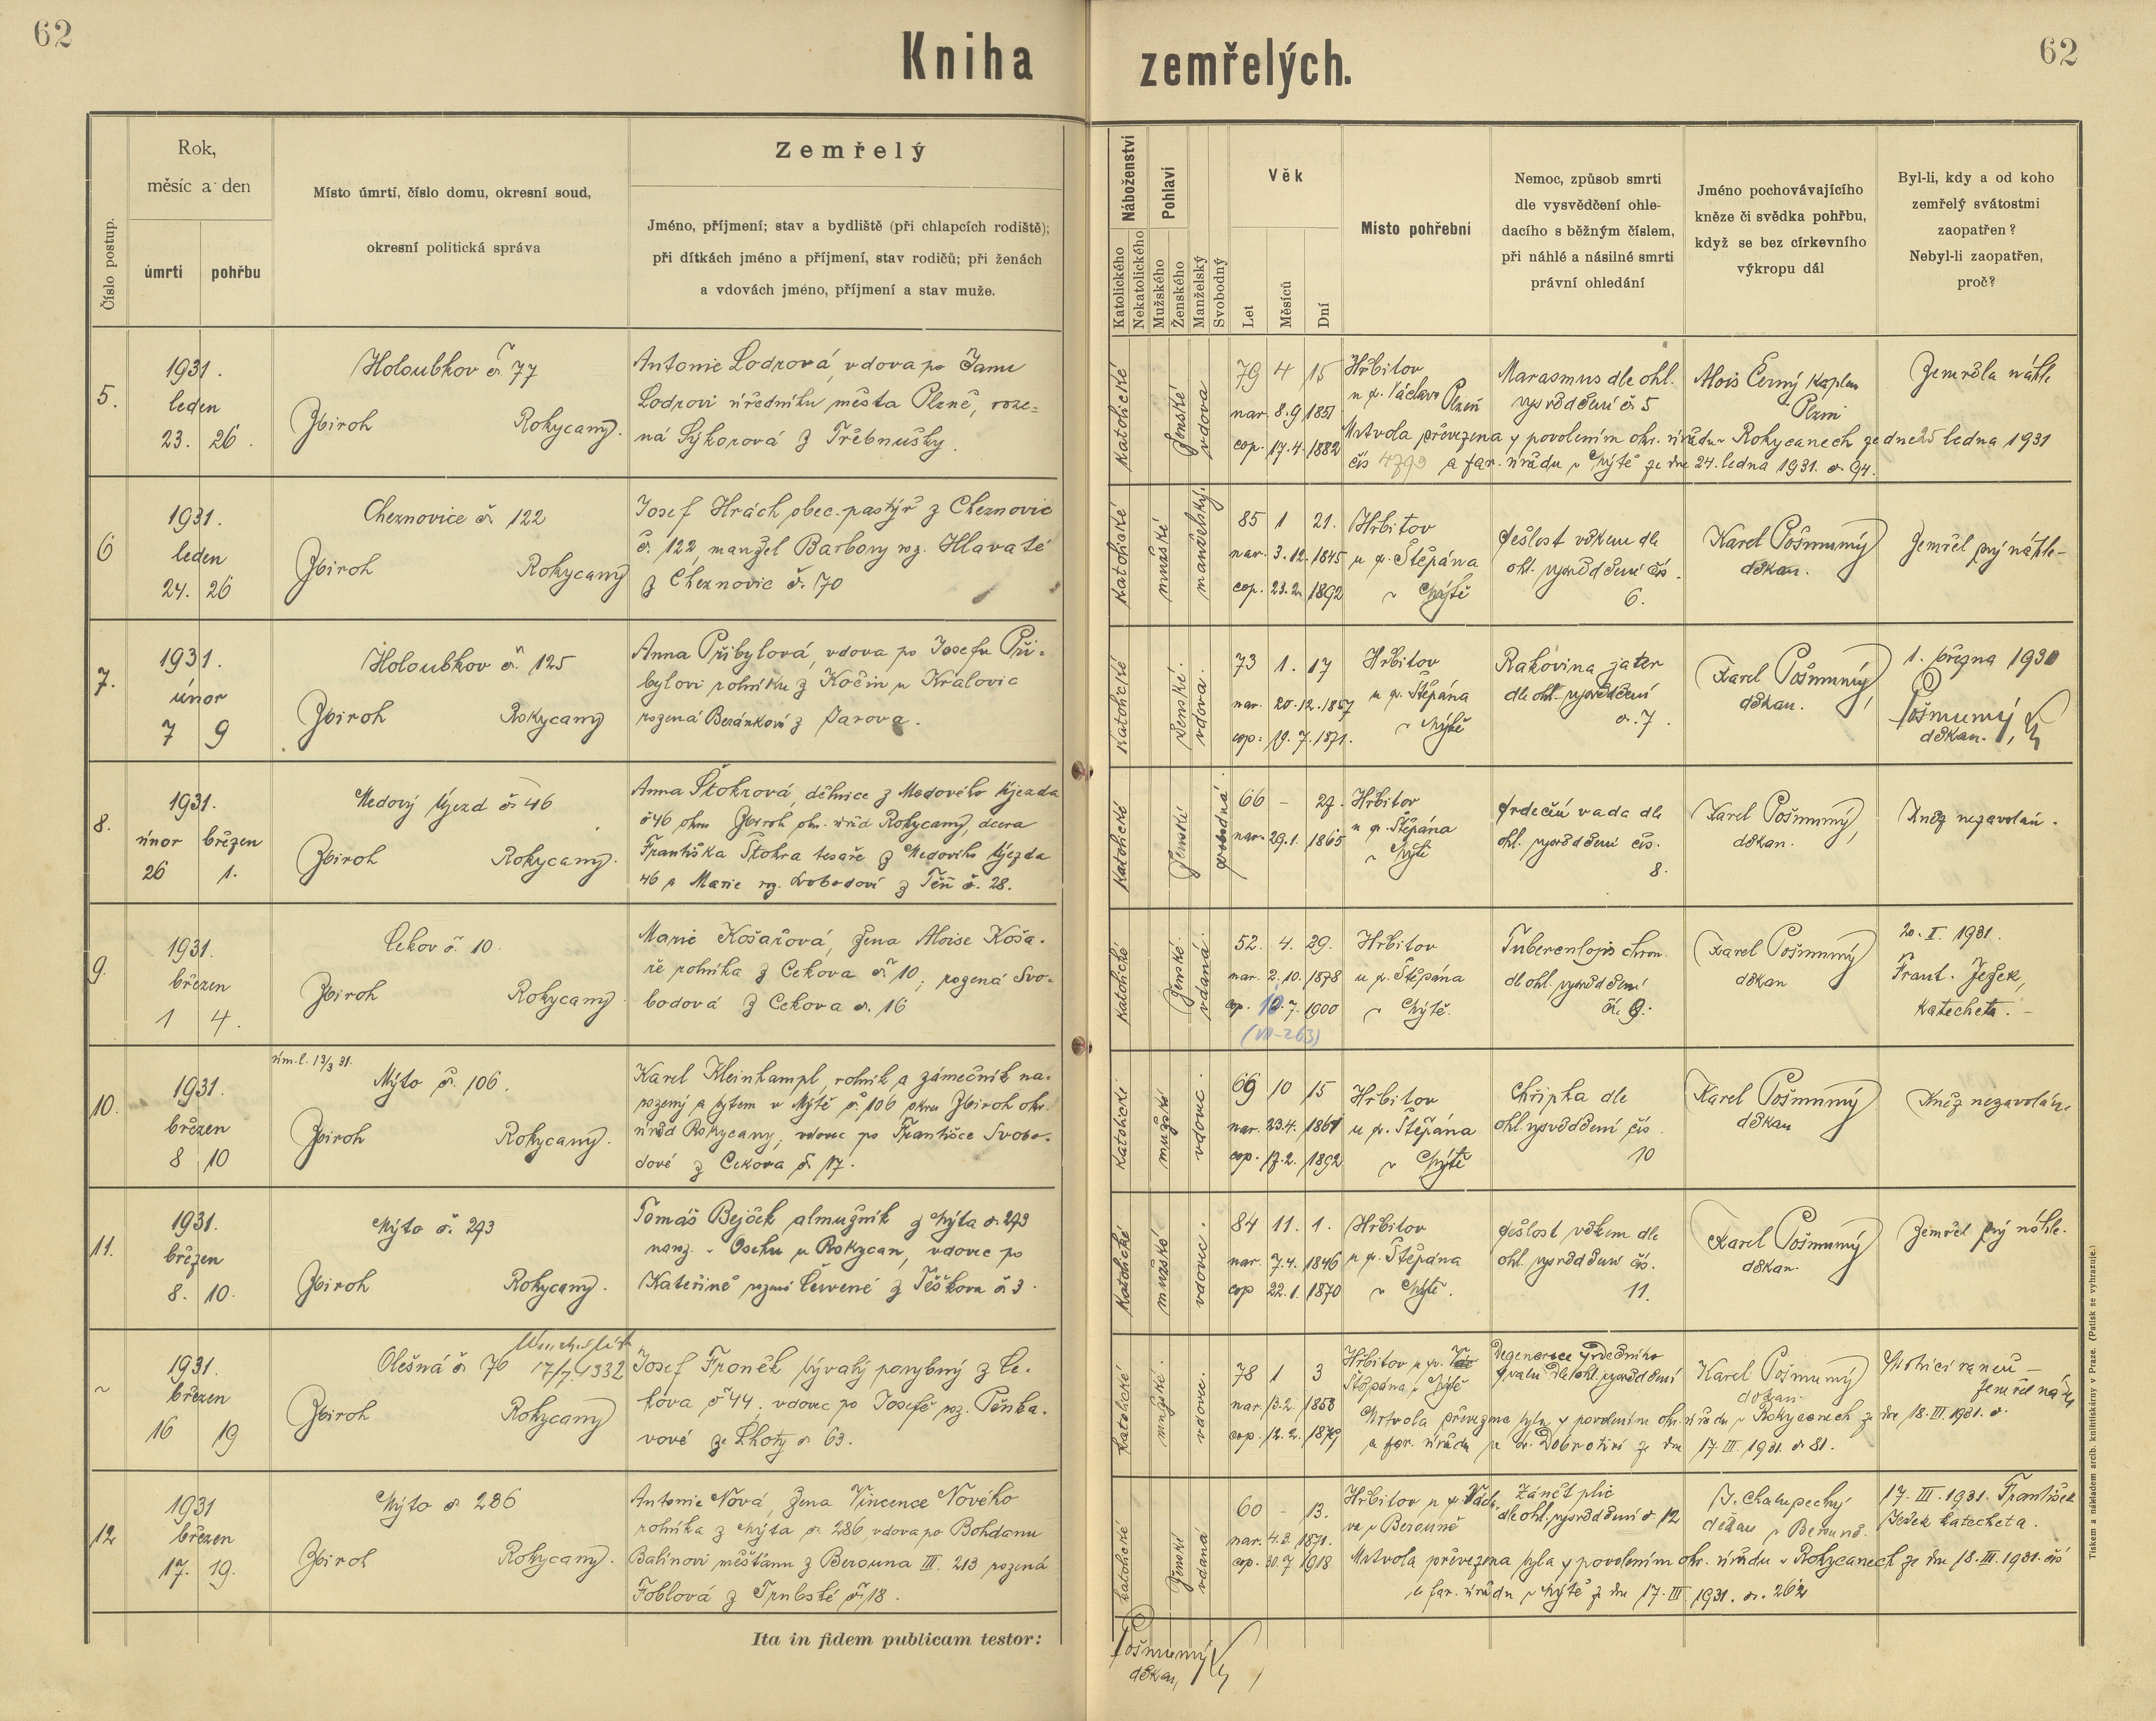 62
Kniha zemřelých.
62
Číslo postup.
Rok,
měsíc a den
úmrtí
pohřbu
Místo úmrtí, číslo domu, okresní soud,
okresní politická správa
Zemřelý
Jméno, příjmení; stav a bydliště (při chlapcích rodiště);
při dítkách jméno a příjmení, stav rodičů; při ženách
a vdovách jméno, příjmení a stav muže.
Náboženství
Katolického
Nekatolického
Pohlaví
Mužského
Ženského
Manželský
Svobodný
Věk
Let
Měsíců
Dní
Místo pohřební
Nemoc, způsob smrti
dle vysvědčení ohle-
dacího s běžným číslem,
při náhlé a násilné smrti
právní ohledání
Jméno pochovávajícího
kněze či svědka pohřbu,
když se bez církevního
výkropu dál
Byl-li, kdy a od koho
zemřelý svátostmi
zaopatřen?
Nebyl-li zaopatřen,
proč?
5.
1931.
leden
23. 26.
Holoubkov č. 77
Zbiroh Rokycany.
Antonie Lodrová, vdova po Janu
Lodrovi úředníku města Plzně, roze=
ná Sýkorová z Třebnušky.
katolické
ženské
vdova
79 4 15
nar. 8.9 1851
cop. 17.4. 1882
Hřbitov
u sv. Václava Plzeň
Marasmus dle ohl.
vysvědčení č. 5
Alois Černý kaplan
Plzni
Zemřela náhle
Mrtvola převezena s povolením okr. úřadu v Rokycanech ze dne 25 ledna 1931
čís 4793 a far. úřadu v Mýtě ze dne 24. ledna 1931. č. 94.
6
1931.
leden
24. 26
Cheznovice č. 122
Zbiroh Rokycany
Josef Hrách obec. pastýř z Cheznovic
č. 122, manžel Barbory roz. Hlavaté
z Cheznovic č. 70
katolické
mužské
manželský.
85 1 21.
nar. 3.12. 1845
cop. 23.2. 1892
Hřbitov
u sv. Štěpána
v Mýtě
sešlost věkem dle
ohl. vysvědčení čís.
6.
Karel Pošmurný
děkan.
Zemřel prý náhle-
7.
1931.
únor
7 9
Holoubkov č. 125
Zbiroh Rokycany
Anna Přibylová, vdova po Josefu Při-
bylovi rolníku z Kočin u Kralovic
rozená Beránková z Jarova.
katolické
ženské.
vdova.
73 1. 17
nar. 20.12. 1857
cop. 19. 7. 1871.
Hřbitov
u sv. Štěpána
v Mýtě
Rakovina jater
dle ohl. vysvědčení
č. 7.
Karel Pošmurný,
děkan.
1. března 1930
Pošmurný,
děkan.
8.
1931.
únor březen
26 1.
Medový Újezd č. 46
Zbiroh Rokycany.
Anna Štohrová, dělnice z Medového Újezda
č 46 okres Zbiroh okr. úřad Rokycany, dcera
Františka Štohra tesaře z Medového Újezda
46 a Marie roz. Svobodové z Těň č. 28.
katolické
ženské
svobodná.
66 - 27.
nar. 29.1. 1865
Hřbitov
u sv. Štěpána
v Mýtě
srdeční vada dle
ohl. vysvědčení čís.
8.
Karel Pošmurný,
děkan.
Kněz nezavolán.
9.
1931.
březen
1 4.
Cekov č. 10.
Zbiroh Rokycany
Marie Košařová, žena Aloise Koša-
ře rolníka z Cekova č. 10, rozená Svo-
bodová z Cekova č. 16
katolické
ženské.
vdaná.
52. 4. 29.
nar. 2. 10. 1878
cop. 10. 7. 1900
(VII-263)
Hřbitov
u sv. Štěpána
v Mýtě.
Tuberculosis chron.
dle ohl. vysvědčení
čí. 9.
Karel Pošmurný
děkan
20. I. 1931.
Frant. Ježek,
katecheta. -
10.
1931.
březen
8 10
úm. l. 13/3 31.
Mýto č. 106.
Zbiroh Rokycany.
Karel Kleinhampl, rolník a zámečník na-
rozený a bytem v Mýtě č. 106 okres Zbiroh okr.
úřad Rokycany, vdovec po Františce Svobo-
dové z Cekova č. 17.
katolické
mužské
vdovec.
69 10 15
nar. 23.4. 1861
cop. 17.2. 1892
Hřbitov
u sv. Štěpána
v Mýtě
Chřipka dle
ohl. vysvědčení čís.
10
Karel Pošmurný
děkan
Kněz nezavolán.
11.
1931.
březen
8. 10.
Mýto č. 293
Zbiroh Rokycany.
Tomáš Bejček almužník z Mýta č. 293
naroz. v Oseku u Rokycan, vdovec po
Kateřině rozené Červené z Těškova č 3.
katolické
mužské
vdovec.
84 11. 1.
nar. 7.4. 1846
cop 22.1. 1870
Hřbitov
u sv. Štěpána
v Mýtě.
sešlost věkem dle
ohl. vysvědčení čís.
11.
Karel Pošmurný
děkan.
Zemřel prý náhle.
~
1931.
březen
16 19
Olešná č. 76 17/7. 1932
Zbiroh Rokycany
Josef Froněk bývalý ponybný z Ce-
kova č 44, vdovec po Josefě roz. Pěnka-
vové ze Lhoty č. 63.
katolické
mužské.
vdovec.
78 1 3
nar. 13.2. 1853
cop. 12.2. 1879
Hřbitov u sv.
Štěpána v Mýtě
Degenerace srdečního
svalu dle ohl. vysvědčení
Karel Pošmurný
děkan.
Mrtvola převezena byla s povolením okr. úřadu v Rokycanech ze dne 18. III. 1931. č.
a far. úřadu sv. Dobrotivé ze dne 17. III. 1931. č. 81.
12
1931
březen
17. 19.
Mýto č. 286
Zbiroh Rokycany.
Antonie Nová, žena Vincence Nového
rolníka z Mýta č. 286, vdova po Bohdanu
Balinovi měšťanu z Berouna III. 213 rozená
Foblová z Trubské č. 18.
katolické
ženské
vdaná
60 - 13.
nar. 4.3. 1871.
cop. 30.7 1918
Hřbitov u sv. Václa-
va v Berouně
Zánět plic
dle ohl. vysvědčení č. 12
J. Chalupecký
děkan v Berouně.
17. III. 1931. František
Ježek katecheta.
Mrtvola převezena byla s povolením okr. úřadu v Rokycanech ze dne 18. III. 1931. čís
a far. úřadu v Mýtě ze dne 17. III. 1931. č. 262
Ita in fidem publicam testor:
Pošmurný
děkan,
Tiskem a nákladem arcib. knihtiskárny v Praze. (Patisk se vyhrazuje.)